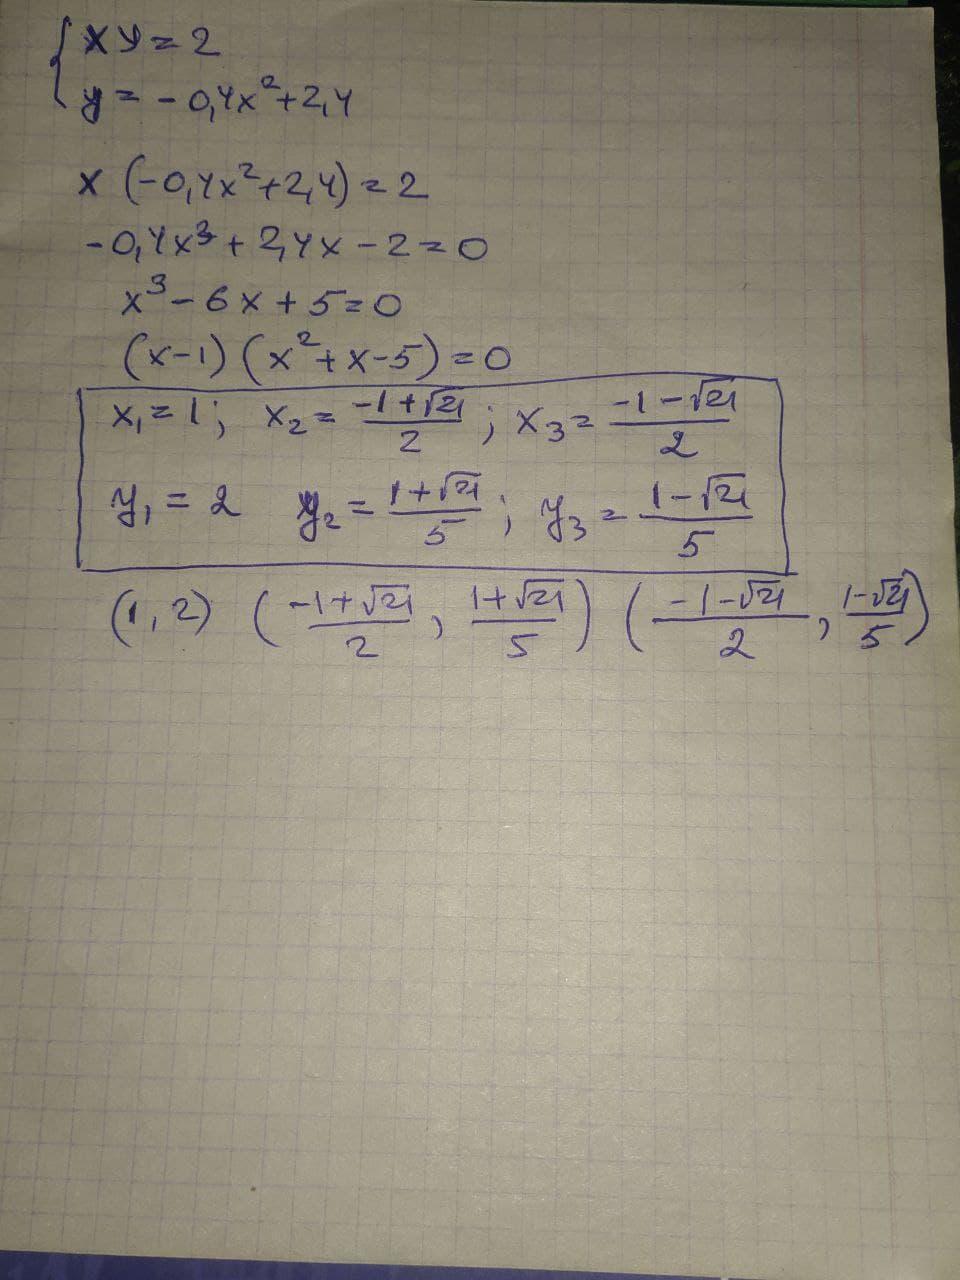 { xy = 2
y = -0,4x² + 2,4
x (-0,4x² + 2,4) = 2
-0,4x³ + 2,4x - 2 = 0
x³ - 6x + 5 = 0
(x-1) (x² + x - 5) = 0
x₁ = 1 ; x₂ = (-1+√21)/2 ; x₃ = (-1-√21)/2
y₁ = 2 y₂ = (1+√21)/5 ; y₃ = (1-√21)/5
(1, 2) ((-1+√21)/2, (1+√21)/5) ((-1-√21)/2, (1-√21)/5)